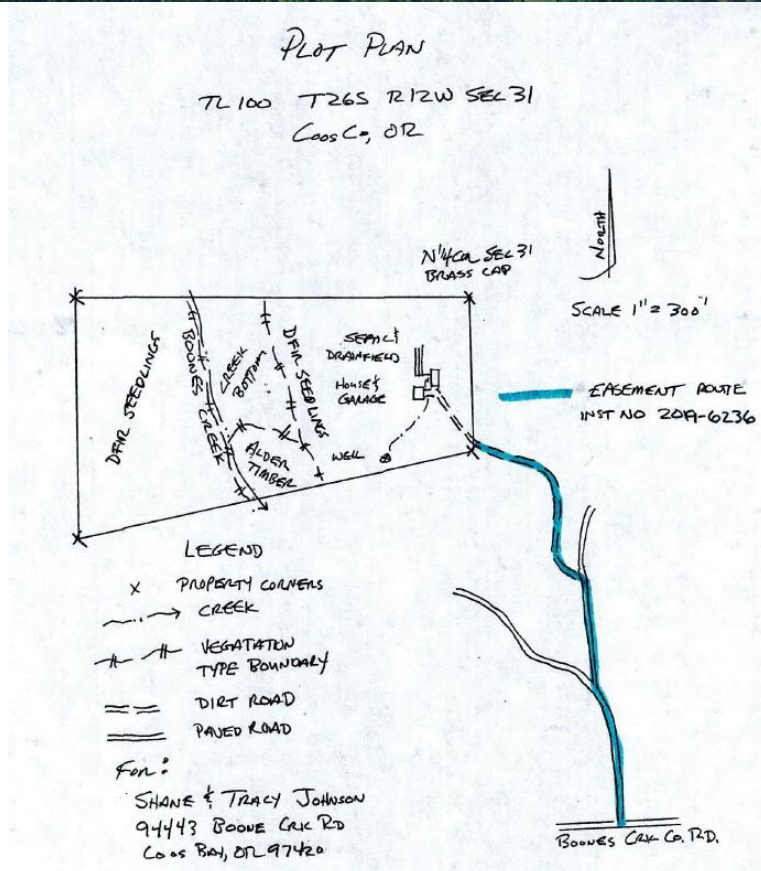 PLOT PLAN
TL 100 T26S R12W SEC 31
COOS CO, OR
NORTH
N 1/4 COR SEC 31
BRASS CAP
SCALE 1" = 300'
EASEMENT ROUTE
INST NO 2019-6236
DFIR SEEDLINGS
BOONES CREEK
CREEK
BOTTOM
DFIR SEEDLINGS
ALDER
TIMBER
SEPTIC &
DRAINFIELD
HOUSE &
GARAGE
WELL
LEGEND
X PROPERTY CORNERS
CREEK
VEGATATION
TYPE BOUNDARY
DIRT ROAD
PAVED ROAD
FOR:
SHANE & TRACY JOHNSON
94443 BOONE CRK RD
COOS BAY, OR 97420
BOONES CRK CO. RD.